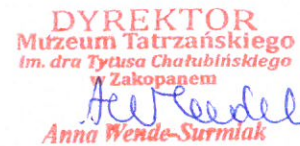 DYREKTOR
Muzeum Tatrzańskiego
im. dra Tytusa Chałubińskiego
w Zakopanem
Anna Wende-Surmiak